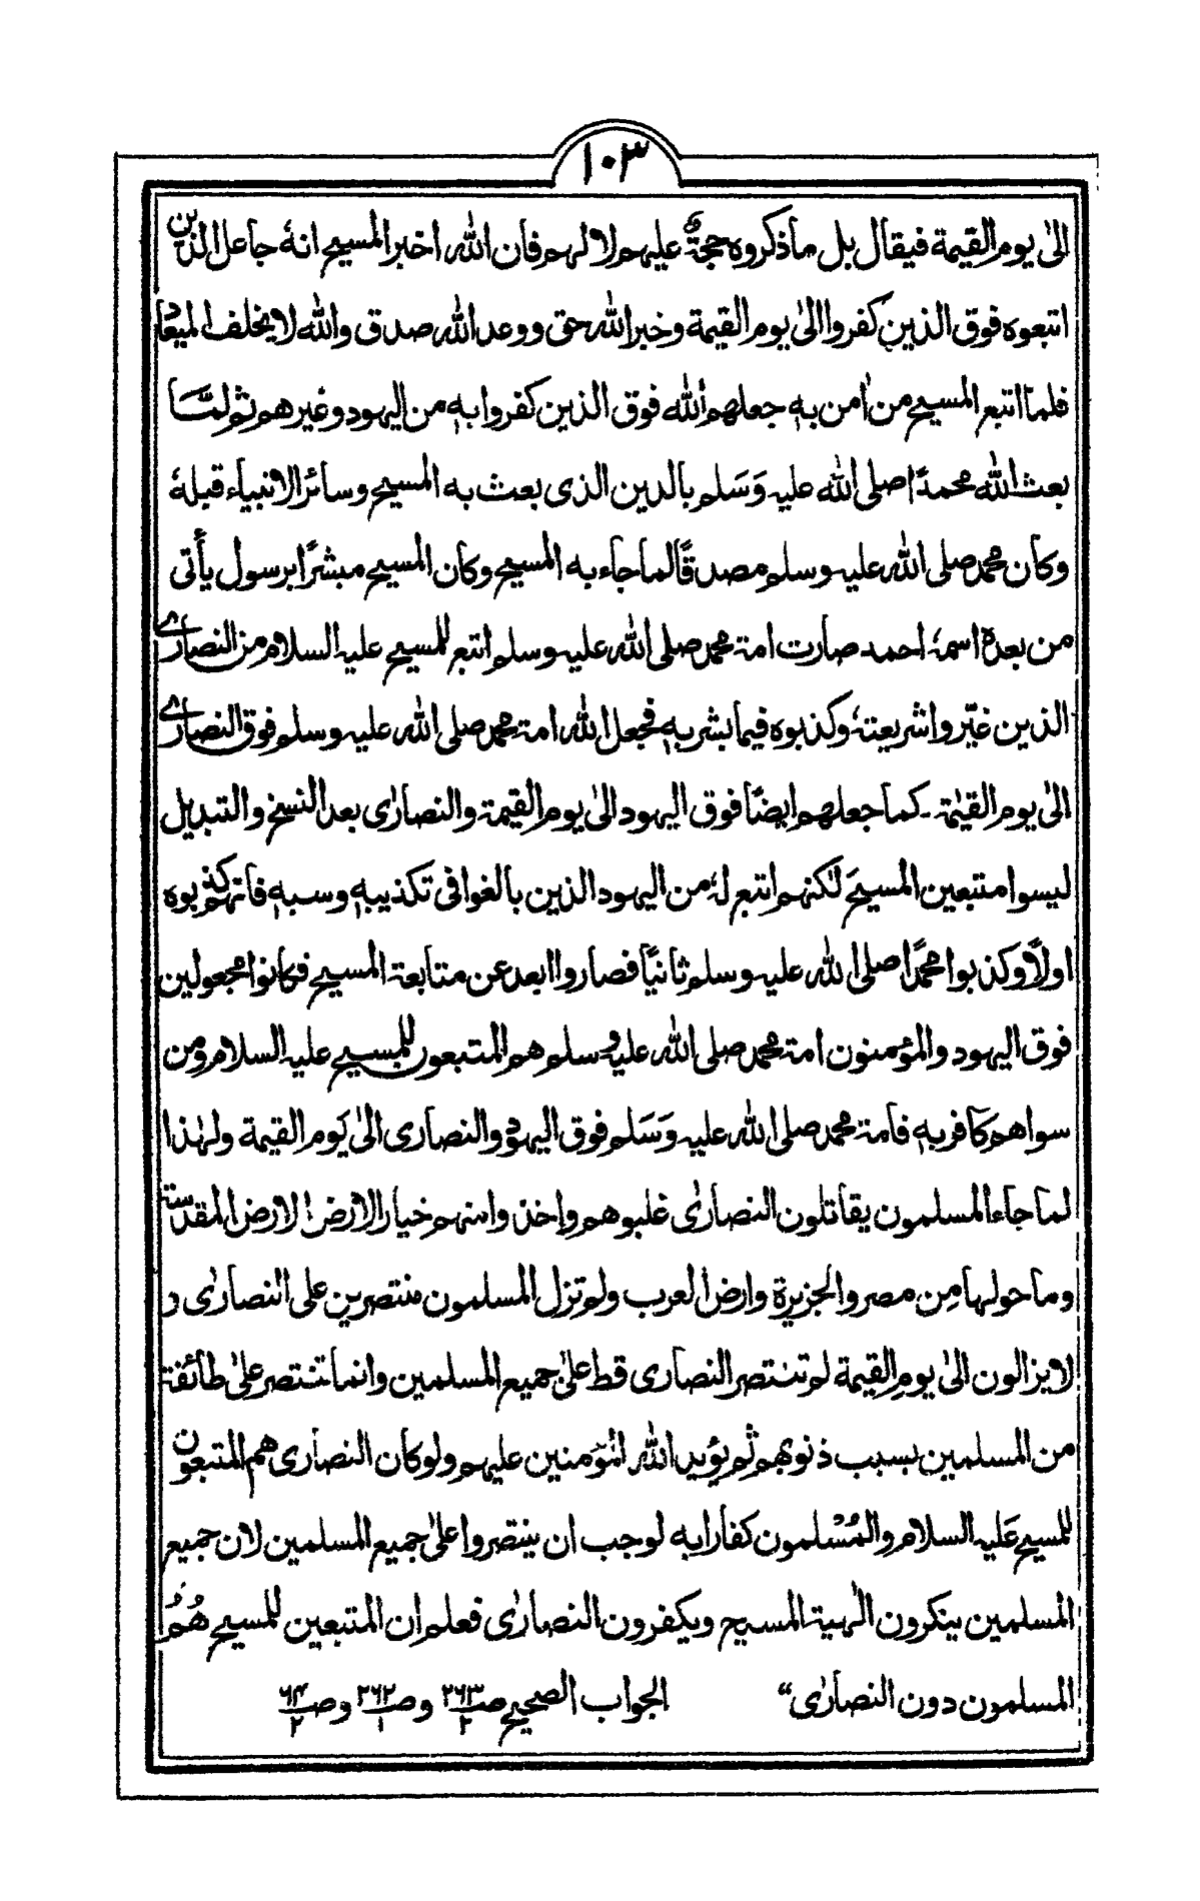 ١٠٣
الىٰ يوم القيمة فيقال بل ما ذكروه حجةٌ عليهم لا لهم فان الله اخبر المسيح انهٗ جاعل الذين
اتبعوه فوق الذين كفروا الىٰ يوم القيمة وخبر الله حق ووعد الله صدق والله لا يخلف الميعاد
فلما اتبع المسيح من اٰمن بهٖ جعلهم الله فوق الذين كفروا بهٖ من اليهود وغيرهم ثم لمَّا
بعث الله محمدًا صلى الله عليه وَسَلم بالدين الذى بعث به المسيح وسائر الانبياء قبلهٗ
وكان محمد صلى الله عليه وسلم مصدقًا لما جاء به المسيح وكان المسيح مبشرًا برسول يأتى
من بعدهٖ اسمهٗ احمد صارت امة محمد صلى الله عليه وسلم اتبع للمسيح عليه السلام من النصارىٰ
الذين غيّروا شريعتهٗ وكذبوه فيما بشر بهٖ فجعل الله امة محمد صلى الله عليه وسلم فوق النصارىٰ
الىٰ يوم القيٰمة ۔ كما جعلهم ايضًا فوق اليهود الىٰ يوم القيمة والنصارٰى بعد النسخ والتبديل
ليسوا متبعين المسيحَ لٰكنهم اتبع لهٗ من اليهود الذين بالغوا فى تكذيبهٖ وسبهٖ فانهم كذبوه
اولًا وكذبوا محمدًا صلى الله عليه وسلم ثانيًا فصاروا ابعد عن متابعة المسيح فكانوا مجعولين
فوق اليهود والمؤمنون امة محمد صلى الله عليه وسلم هم المتبعون للمسيح عليه السلام ومن
سواهم كافر بهٖ فامة محمد صلى الله عليه وَسَلم فوق اليهود والنصارى الىٰ يوم القيمة ولهٰذا
لما جاء المسلمون يقاتلون النصارٰى غلبوهم واخذوا منهم خيار الارض الارض المقدسة
وما حولها مِن مصر والجزيرة وارض العرب ولم تزل المسلمون منتصرين على النصارٰى و
لا يزالون الىٰ يوم القيمة لم تنتصر النصارى قط علىٰ جميع المسلمين وانما تنتصر علىٰ طائفة
من المسلمين بسبب ذنوبهم ثم يؤيد الله المؤمنين عليهم ولو كان النصارى هم المتبعون
للمسيح عَليه السلام والمُسْلمون كفارا به لوجب ان ينتصروا علىٰ جميع المسلمين لان جميع
المسلمين ينكرون الٰهية المسيح ويكفرون النصارٰى فعلم ان المتبعين للمسيح هُمُ
المسلمون دون النصارٰى“ الجواب الصحيح صـ٢٦٣/٢ وصـ٣٦٢/١ وصـ٦٤/٢